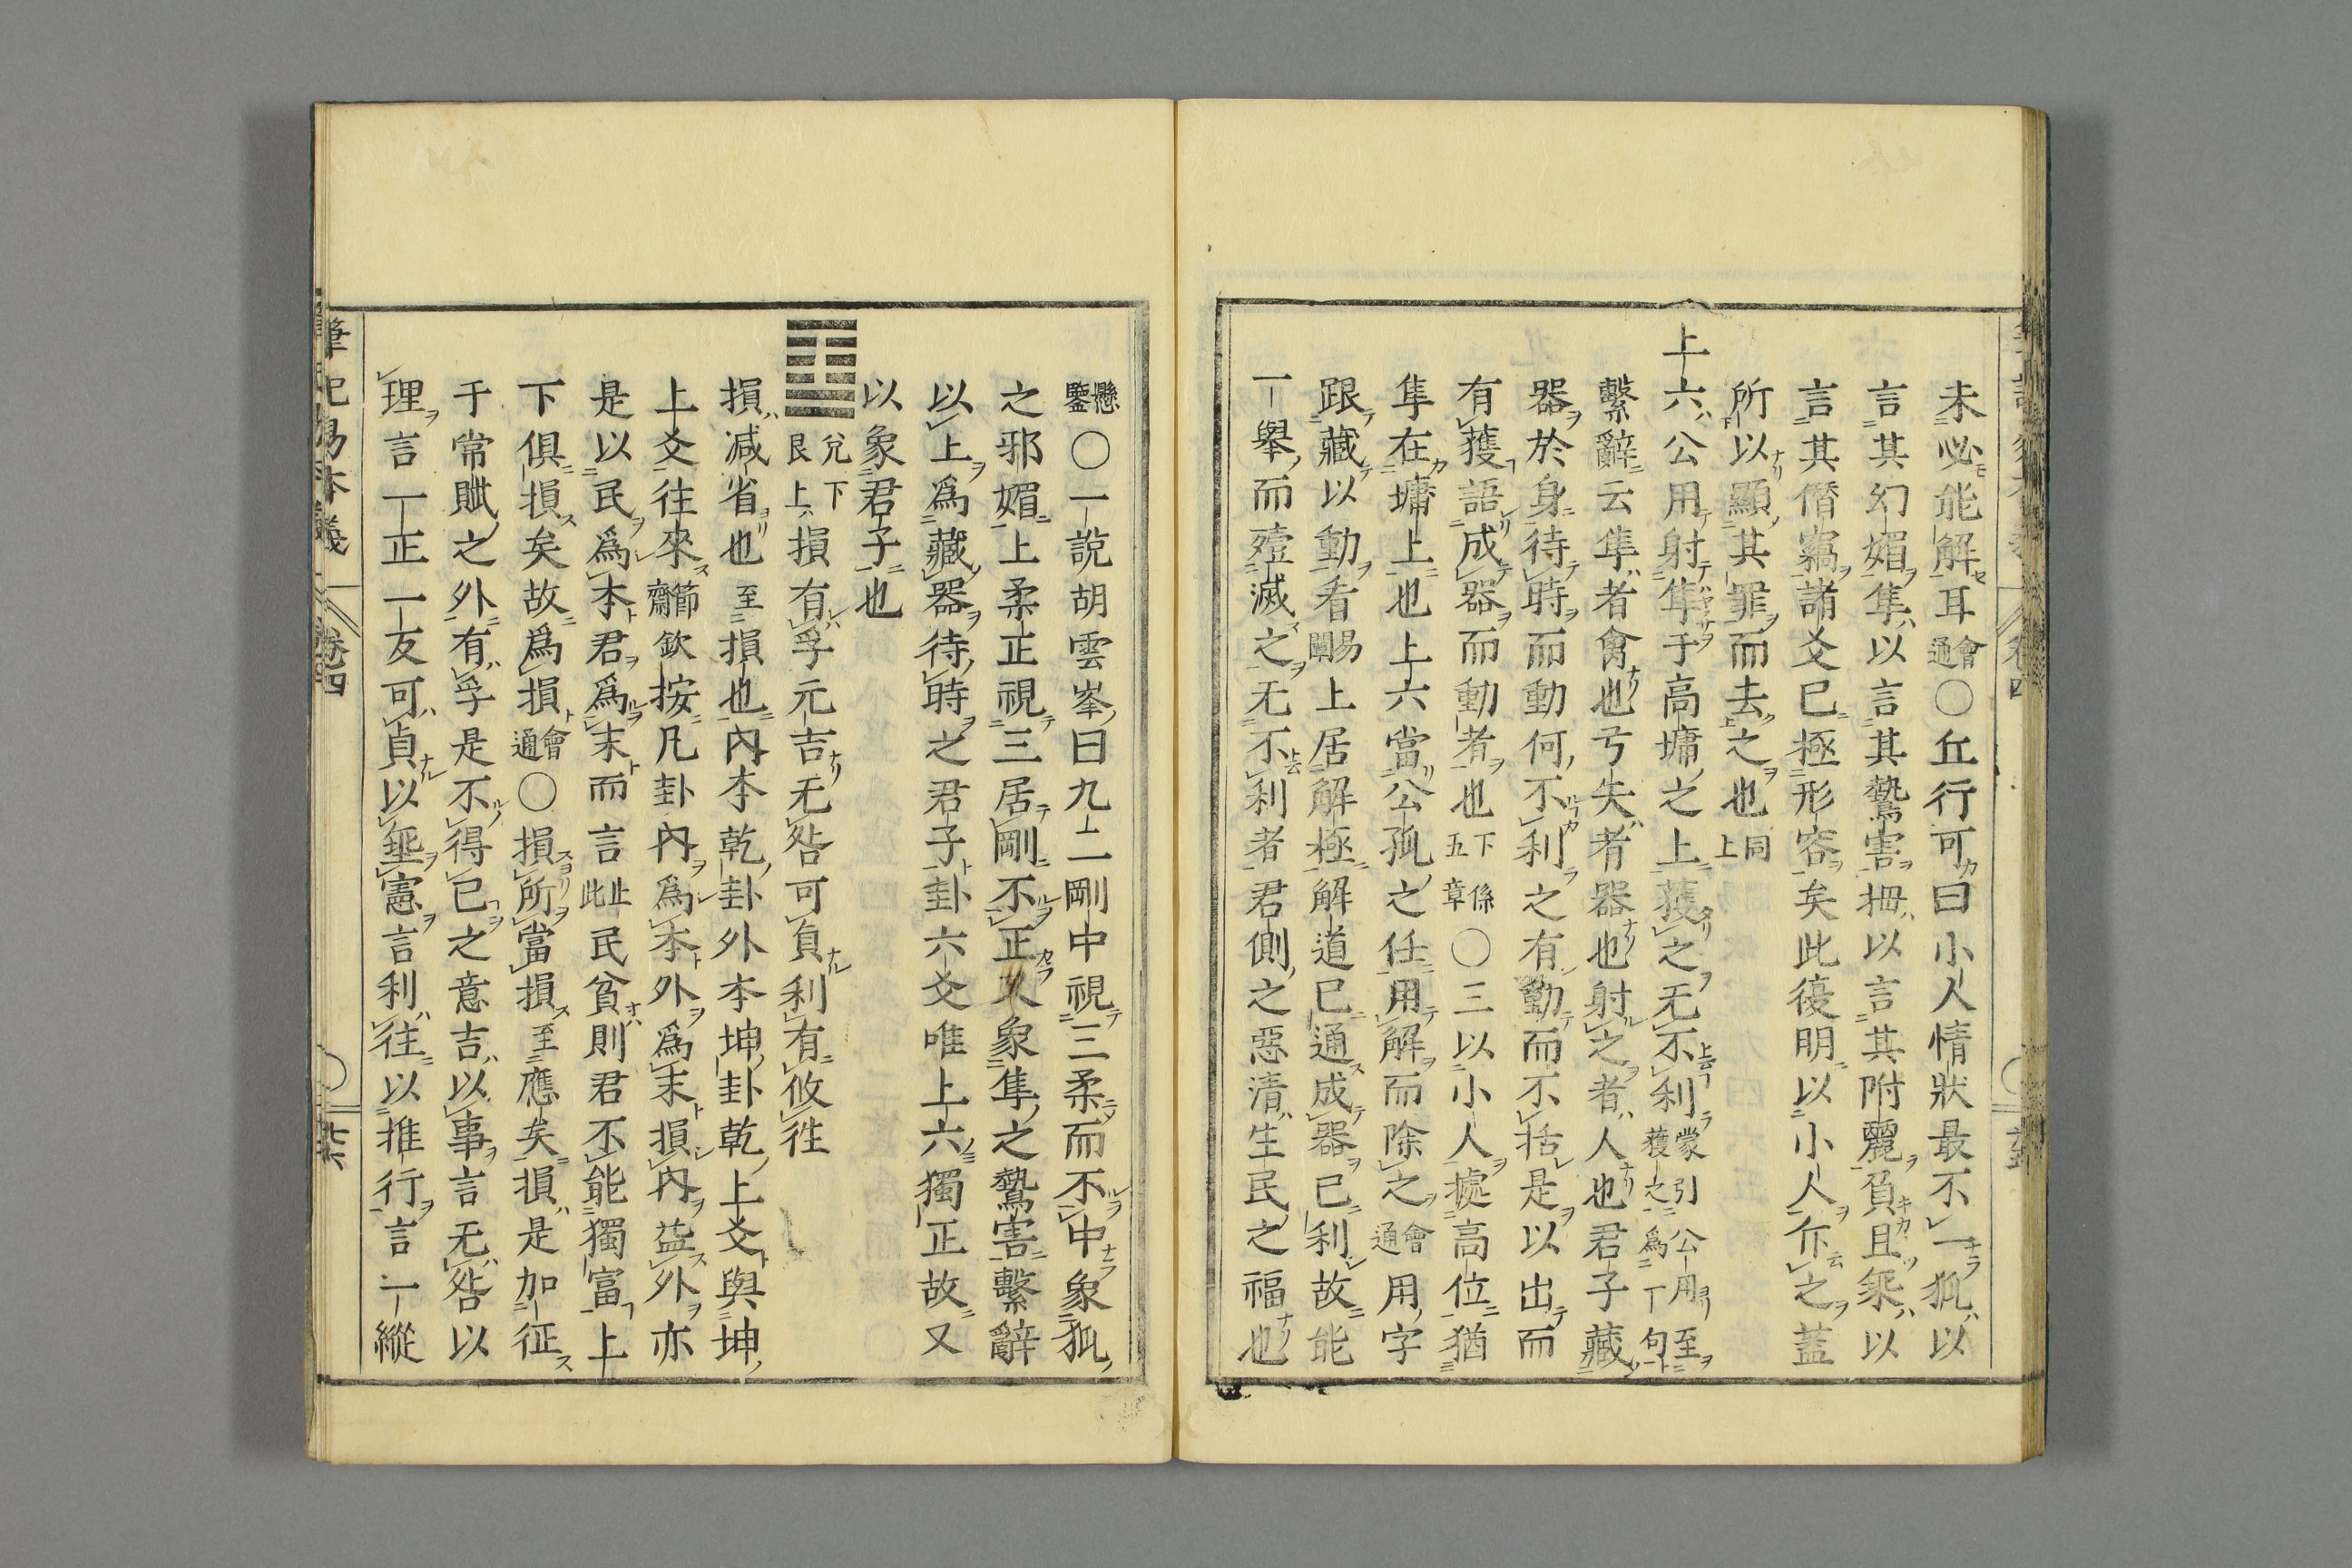 未必能解耳會通〇丘行可曰小人情狀最不一狐以
言其幻媚隼以言其鷙害拇以言其附麗負且乘以
言其僭竊諸爻已極形容矣此復明以小人斥之蓋
所以顯其罪而去之也同上
上六公用射隼于高墉之上獲之无不利蒙引公用至獲之為一句
繫辭云隼者禽也弓矢者器也射之者人也君子藏
器於身待時而動何不利之有動而不括是以出而
有獲語成器而動者也下係五章〇三以小人處高位猶
隼在墉上也上六當公孤之任用解而除之會通用字
跟藏以動看易闡上居解極解道已通成器已利故能
一舉而殪滅之无不利者君側之惡清生民之福也
懸鑒〇一說胡雲峯曰九二剛中視三柔而不中象狐
之邪媚上柔正視三居剛不正又象隼之鷙害繫辭
以上為藏器待時之君子卦六爻唯上六獨正故又
以象君子也
兌下艮上損有孚元吉无咎可貞利有攸往
損減省也至損也內本乾卦外本坤卦乾上爻與坤
上爻往來節齋欽按凡卦內為本外為末損內益外亦
是以民為本君為末而言止此民貧則君不能獨富上
下俱損矣故為損會通〇損所當損至應矣損是加征
于常賦之外有孚是不得已之意吉以事言无咎以
理言一正一反可貞以埀憲言利往以推行言一縱
筆記周易本義 卷四